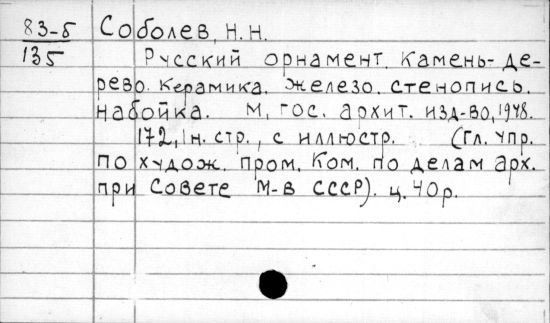 83-5 Соболев, Н.Н.
135 Русский орнамент. Камень-де-
рево. Керамика. Железо. Стенопись.
Набойка. М, гос. архит. изд-во, 1948.
172, 1 н. стр., с иллюстр. (Гл. упр.
по худож. пром. Ком. по делам арх.
при Совете М-в СССР). ц. 40р.